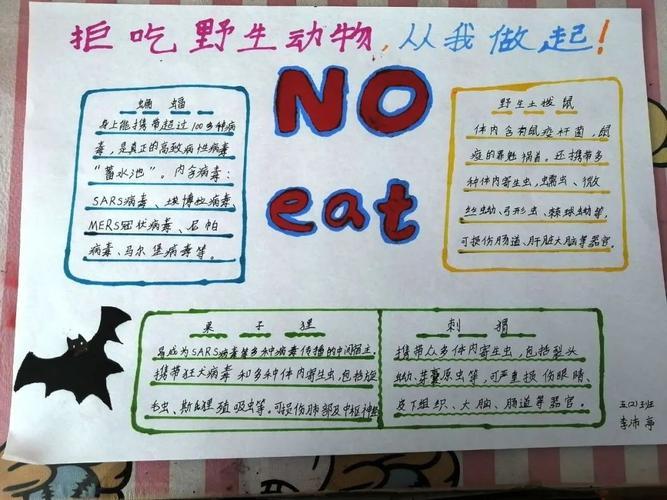 拒吃野生动物,从我做起!
NO
eat
蝙蝠
身上能携带超过100多种病
毒,是真正的高致病性病毒
"蓄水池"。内含病毒:
SARS病毒、埃博拉病毒
MERS冠状病毒、尼帕
病毒、马尔堡病毒等。
野生土拨鼠
体内含有鼠疫杆菌,鼠
疫的罪魁祸首。还携带多
种体内寄生虫,蠕虫、微
丝蚴、弓形虫、棘球蚴等,
可损伤肠道、肝脏大脑等器官
果子狸
易成为SARS病毒等多种病毒传播的中间宿主
携带狂犬病毒和多种体内寄生虫,包括旋
毛虫、斯氏狸殖吸虫等。可损伤肺部及中枢神经
刺猬
携带众多体内寄生虫,包括裂头
蚴、芽囊原虫等,可严重损伤眼睛、
皮下组织、大脑、肠道等器官。
五(2)班
李沛